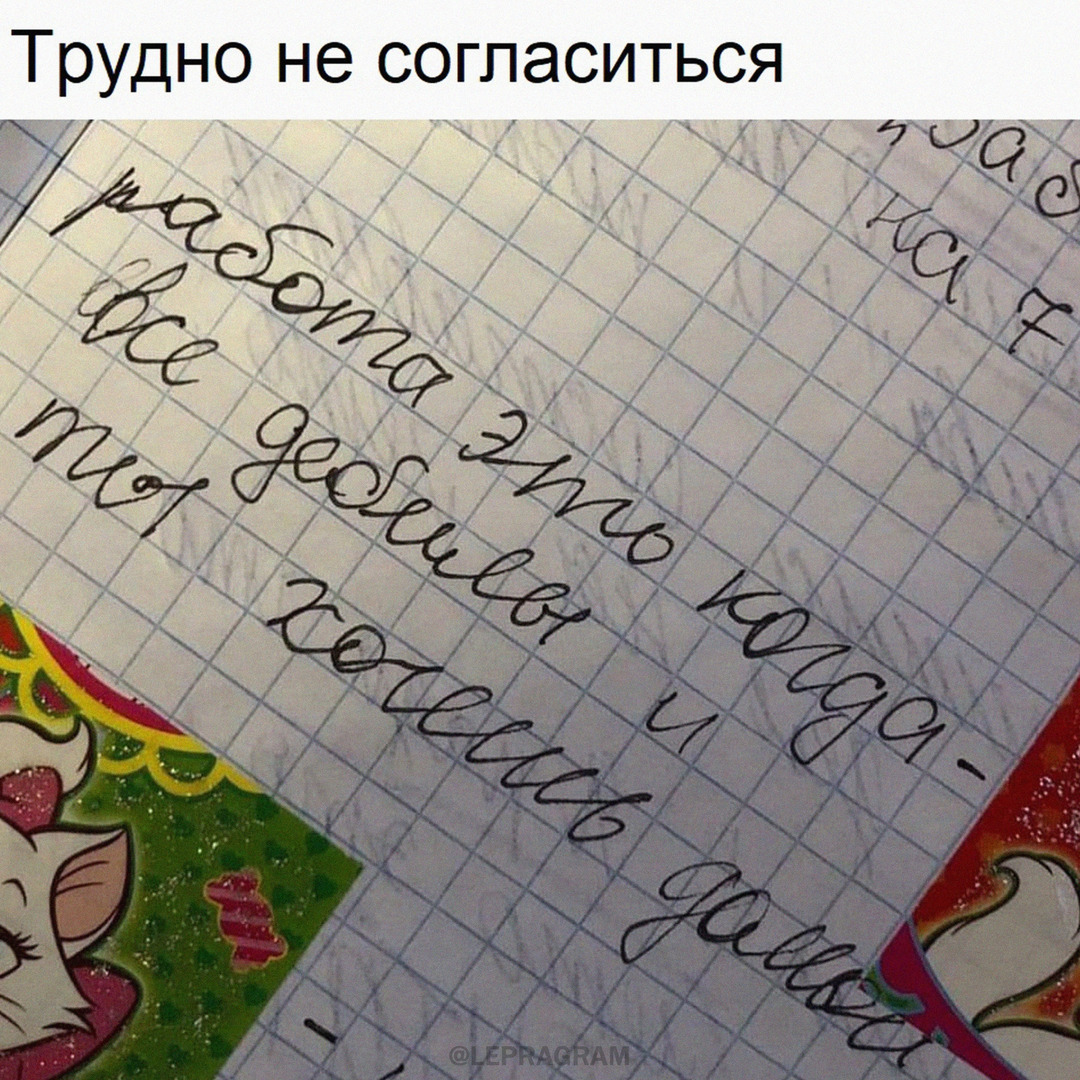 Трудно не согласиться
на 7
работа это когда-
все дебилы и
ты хочешь
@LEPRAGRAM